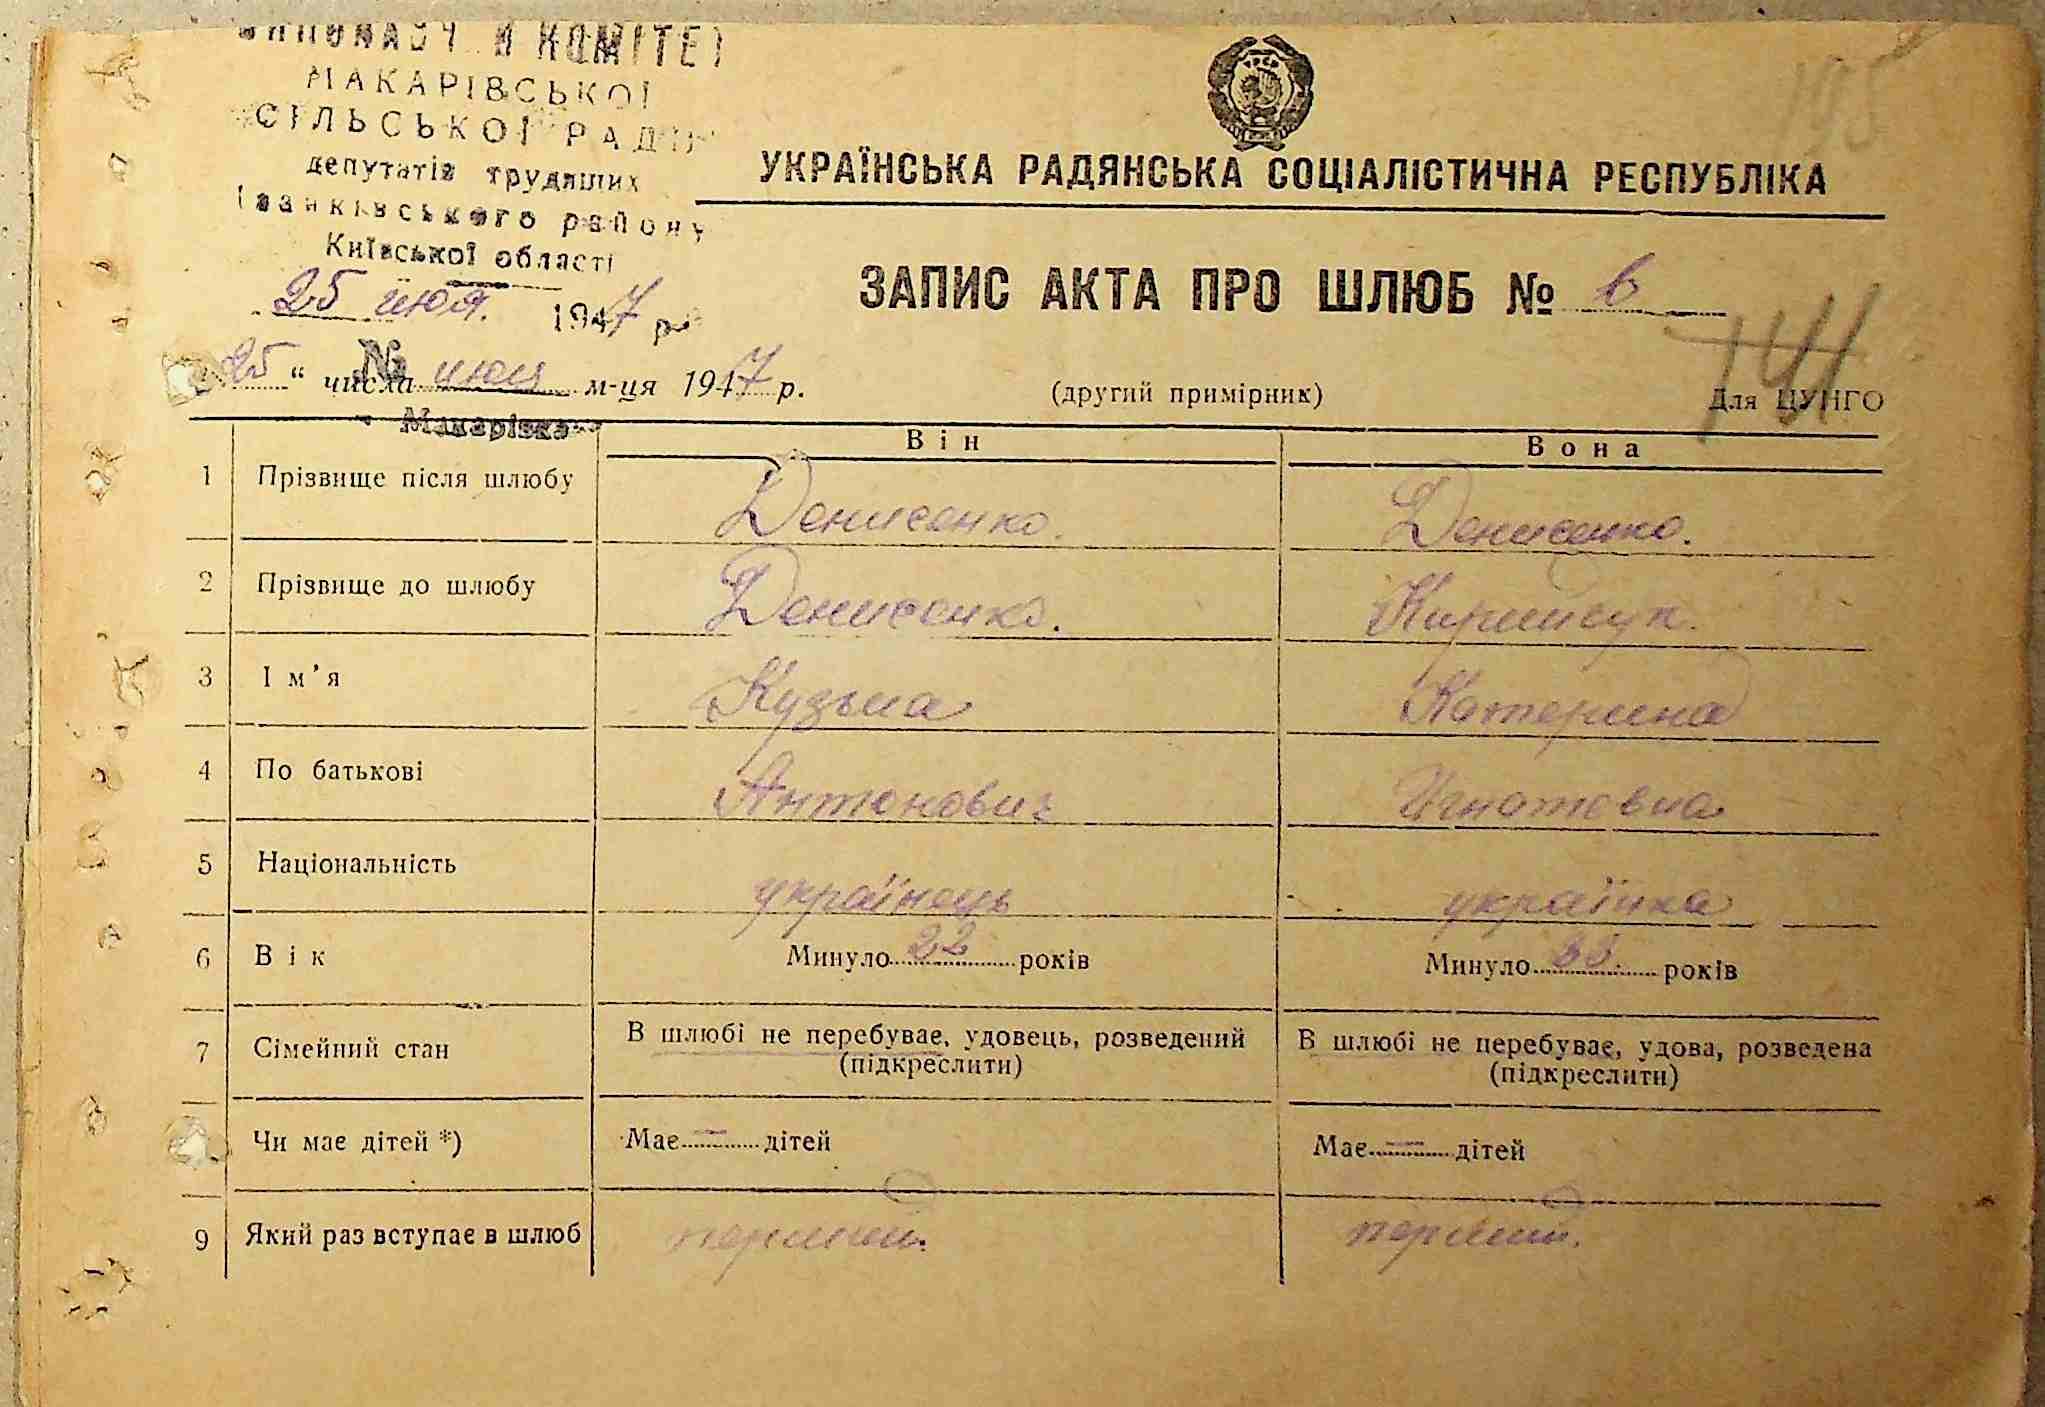 КОМІТЕТ
МАКАРІВСЬКОЇ
СІЛЬСЬКОЇ РАДИ
депутатів трудящих
Іванківського району
Київської області
25 июля. 1947 р.
№
Макарівка
195
УРСР
УКРАЇНСЬКА РАДЯНСЬКА СОЦІАЛІСТИЧНА РЕСПУБЛІКА
ЗАПИС АКТА ПРО ШЛЮБ № 6
„25“ числа июля м-ця 1947 р.
(другий примірник)
Для ЦУНГО
Він
Вона
1 Прізвище після шлюбу Денисенко. Денисенко.
2 Прізвище до шлюбу Денисенко.
3 Ім’я Кузьма Катерина
4 По батькові Антонович Игнатовна
5 Національність українець українка
6 Вік Минуло 22 років Минуло років
7 Сімейний стан В шлюбі не перебуває, удовець, розведений (підкреслити) В шлюбі не перебуває, удова, розведена (підкреслити)
Чи має дітей *) Має — дітей Має — дітей
9 Який раз вступає в шлюб перший. перший.